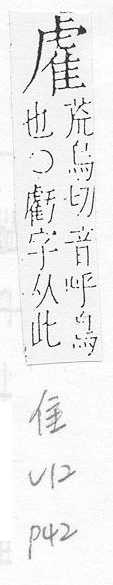 雐
荒烏切音呼鳥
也○虧字从此
隹
V12
P42